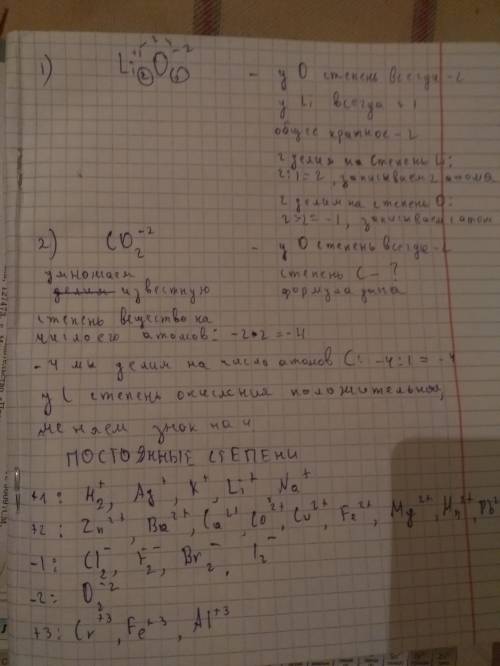 1) Li₂O⁻² - у O степень всегда -2
у Li всегда +1
общее кратное - 2
2 делим на степень Li:
2:1=2, записываем 2 атома
2 делим на степень O:
2:2= -1, записываем 1 атом
2) CO₂⁻² - у O степень всегда -2
умножаем степень C - ?
делим известную формула дана
степень вещества на
число его атомов: -2*2=-4
-4 мы делим на число атомов C: -4:1=-4
у C степень окисления положительная,
меняем знак на +
ПОСТОЯННЫЕ СТЕПЕНИ
+1: H₂⁺, Ag⁺, K⁺, Li⁺, Na⁺
+2: Zn²⁺, Ba²⁺, Ca²⁺, Co²⁺, Cu²⁺, Fe²⁺, Mg²⁺, Mn²⁺, Pb²
-1: Cl₂⁻, F₂⁻, Br₂⁻, I₂⁻
-2: O₂⁻²
+3: Cr⁺³, Fe⁺³, Al⁺³